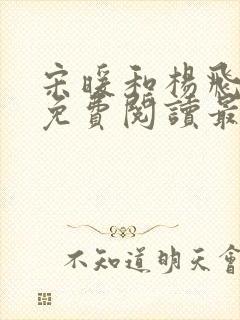 宋暖和楊飛
免費閱讀最
不知道明天會